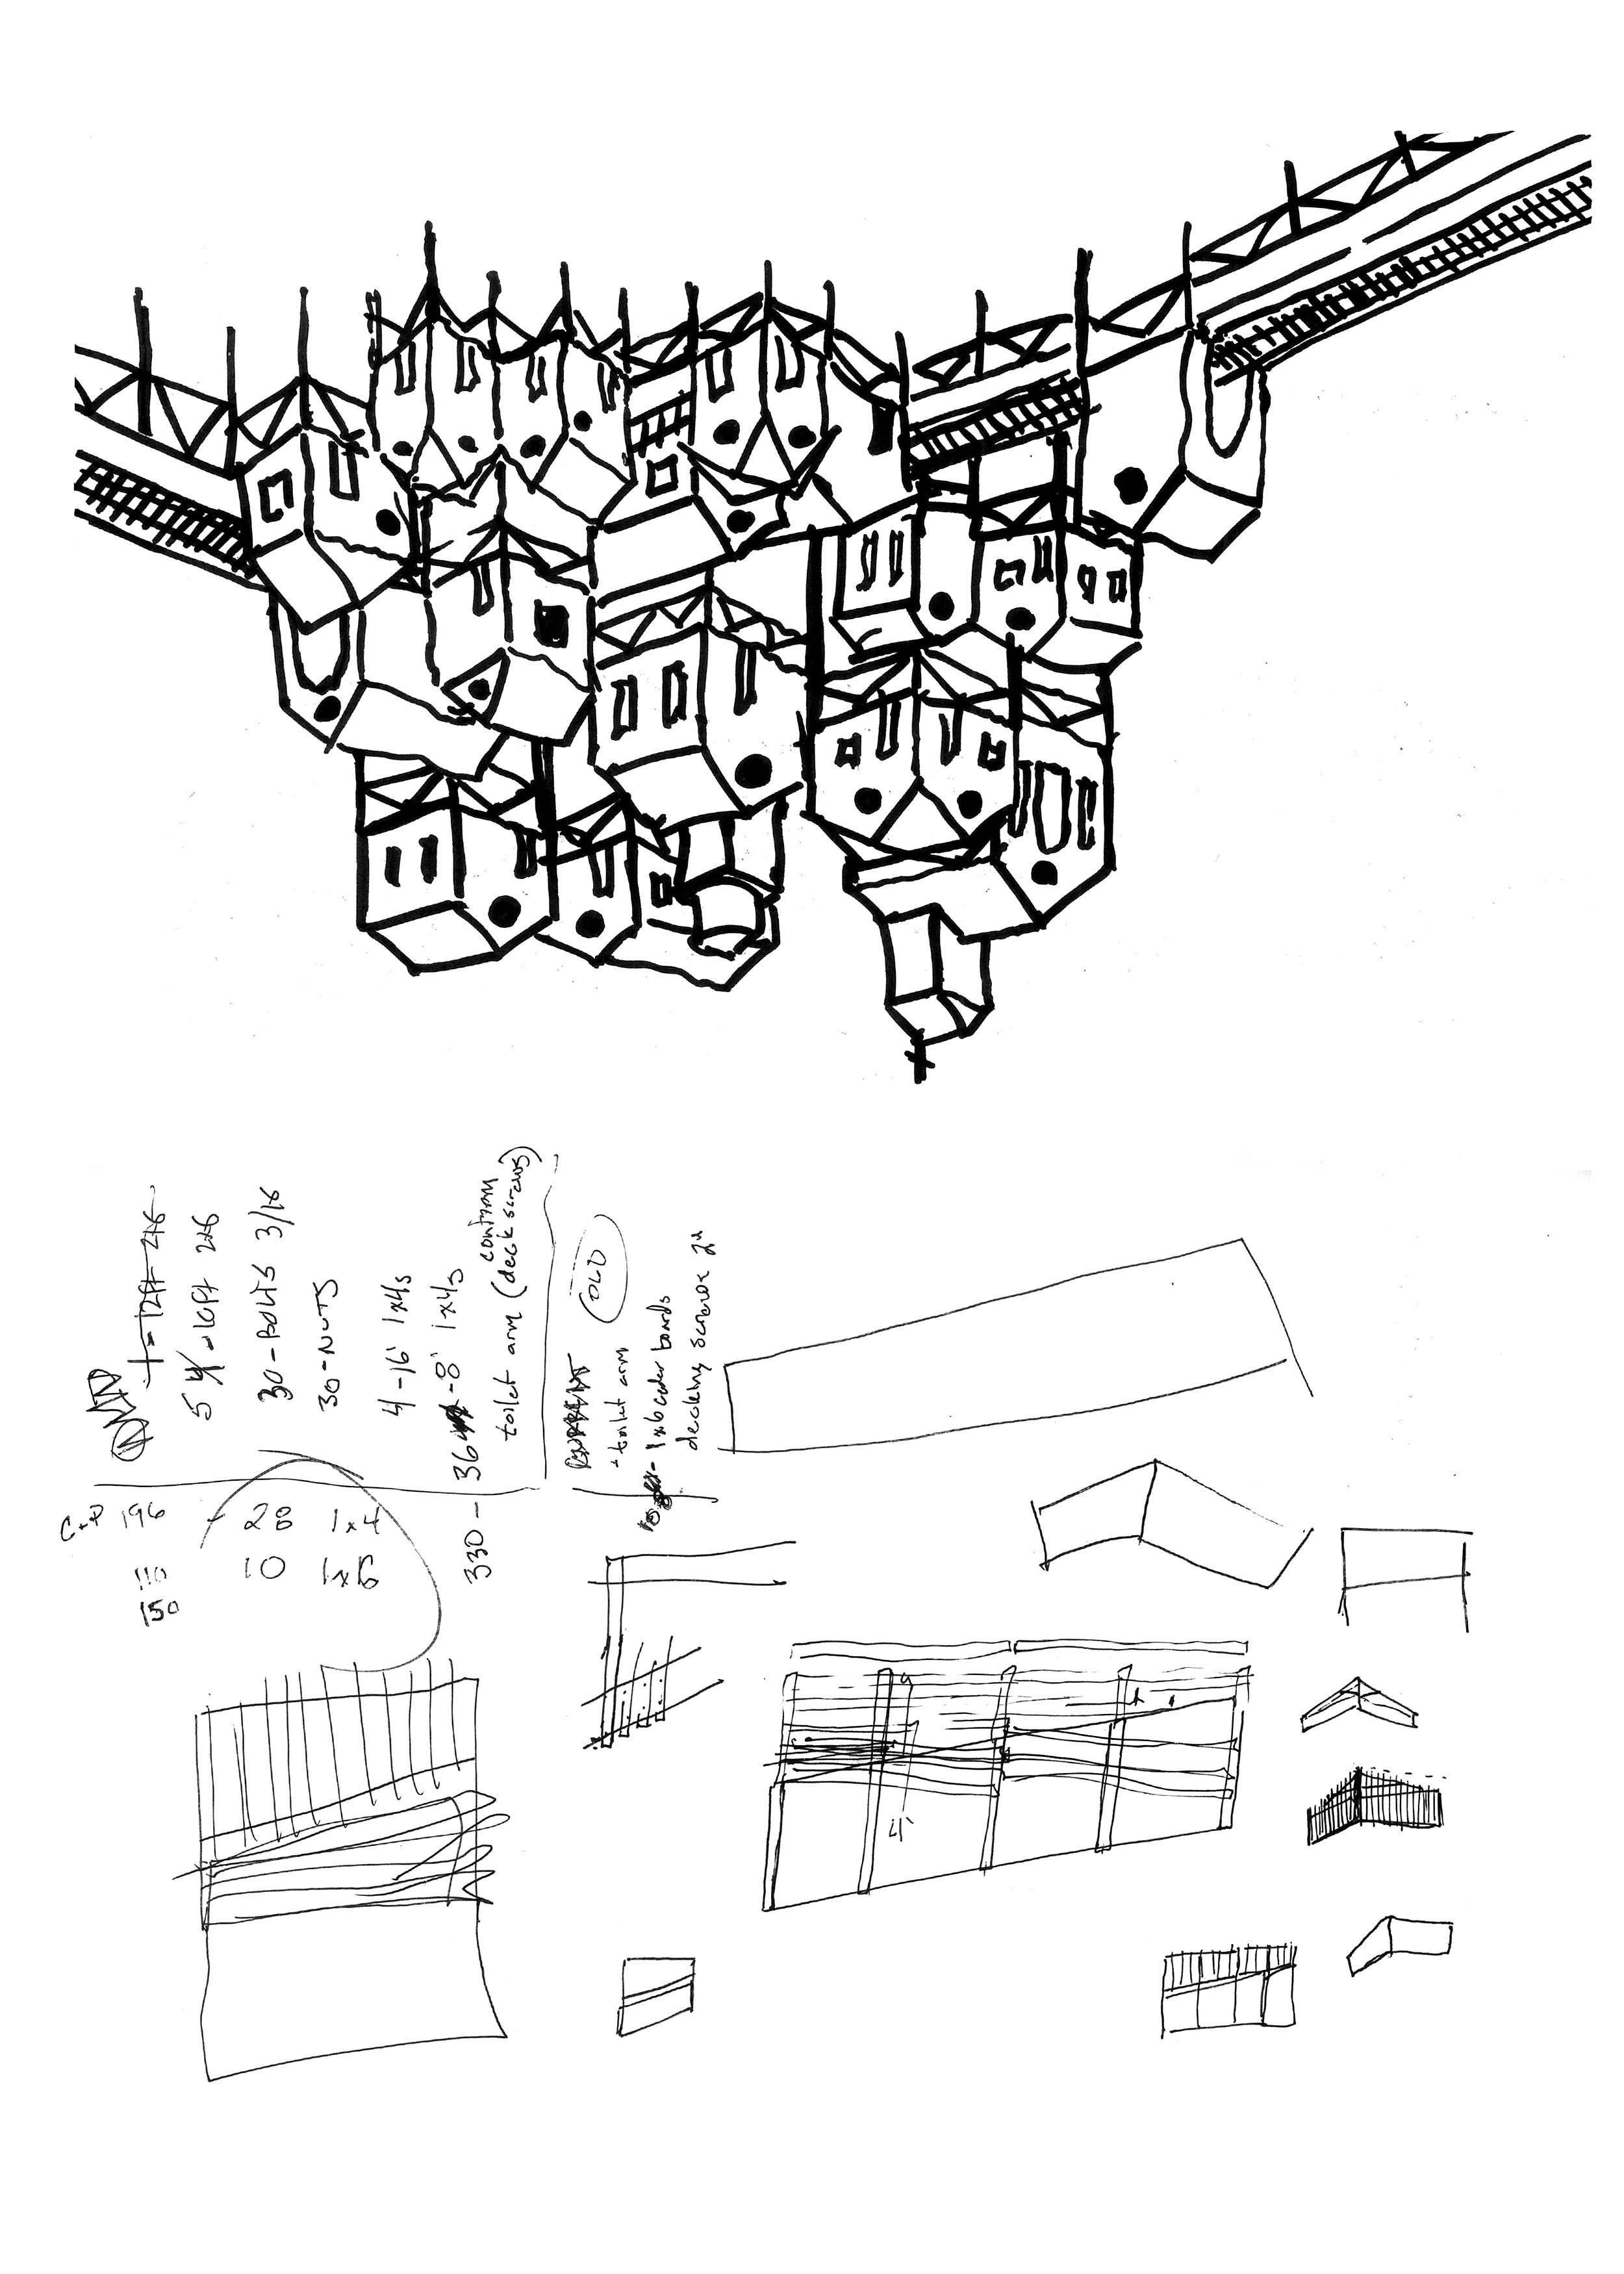 1 - 12ft 2x6
5 4 - 10ft 2x6
30 - BOLTS 3/16
30 - NUTS
4 - 16' 1x4s
36 - 8' 1x4s
toilet arm (deck screws)
contrary
OLD
toilet arm
- 1x6 cedar boards
decking screws 2"
196
28 1x4
10 1x6
150
330 -
4'